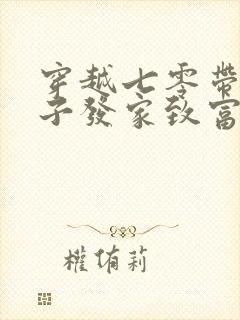 穿越七零帶
子發家致富
權侑莉